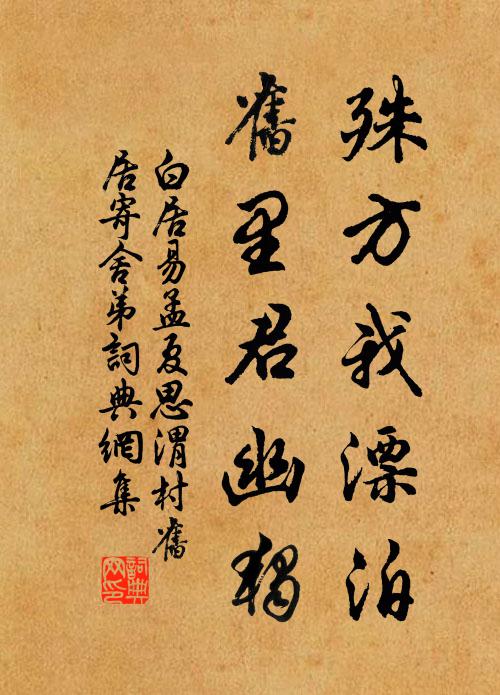 殊方我漂泊
舊里君幽獨
白居易孟夏思渭村舊
居寄舍弟詞典網集
詞典
网印